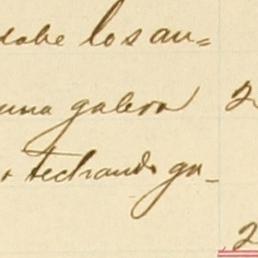 dobe los an=
una galera 2
techando ga-
2